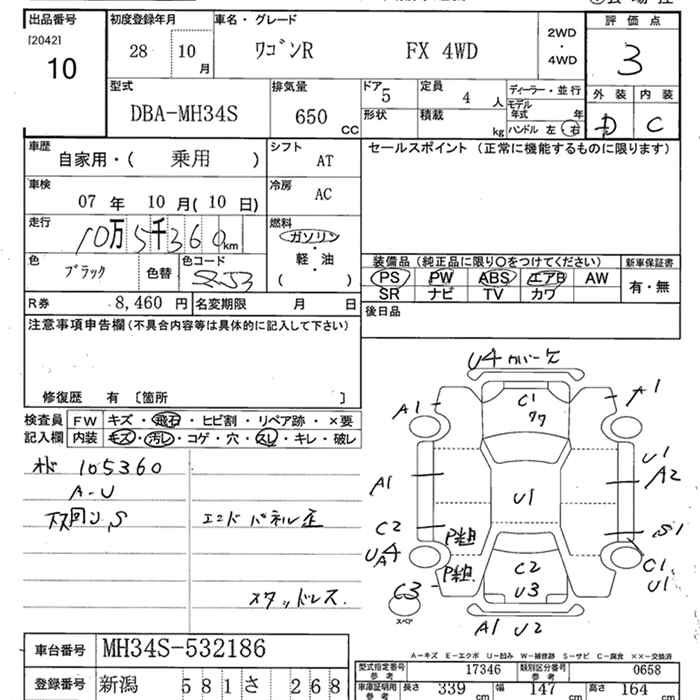 出品番号 初度登録年月 車名・グレード 2WD・4WD 評価点
[2042]
10
28 10月
ワゴンR FX 4WD
3
型式 排気量 ドア 定員 ディーラー・並行 外装 内装
DBA-MH34S 650 CC 5 4人 モデル年式 年
形状 積載 kg ハンドル 左・右
D C
車歴 シフト セールスポイント (正常に機能するものに限ります)
自家用・( 乗用 ) AT
車検 冷房
07年 10月(10日) AC
走行 燃料
10万5千360km ガソリン・軽・油
( )
色 色替 色コード
ブラック ZJ3
装備品(純正品に限り○をつけてください) 新車保証書
PS PW ABS エアB AW 有・無
SR ナビ TV カワ
R券 8,460円 名変期限 月 日
後日品
注意事項申告欄(不具合内容等は具体的に記入して下さい)
修復歴 有 〔箇所 〕
検査員記入欄
FW キズ・飛石・ヒビ割・リペア跡・×要
内装 キズ・汚レ・コゲ・穴・スレ・キレ・破レ
105360
A-U
下回り、S エンドパネル歪
スタッドレス.
U4 カバーケ
A1 C1 A1
ワワ
A1 U1 U1 A2
C2 P粗 S1
UA4 P粗 C2 U3 C1 U1
C3
スペア
A1 U2
A-キズ E-エクボ U-凹み W-補修跡 S-サビ C-腐食 ××-交換済
車台番号 MH34S-532186
型式指定番号 参考 17346 類別区分番号 参考 0658
登録番号 新潟 581 さ 268
車庫証明用 参考 長さ 339cm 幅 147cm 高さ 164cm